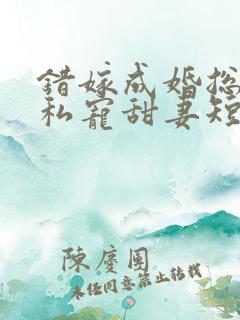 錯嫁成婚总
私寵甜妻短
陳慶国
未经同意禁止转载